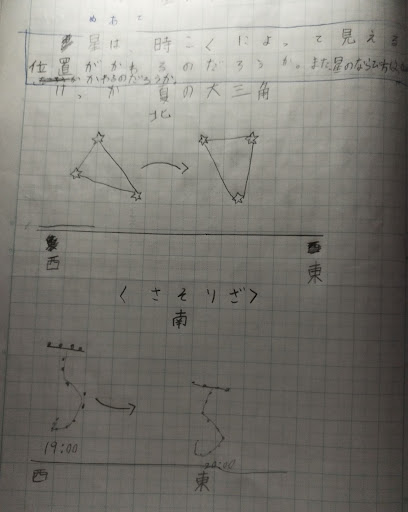 めあて
星は、時こくによって見える
位置がかわるのだろうか。また星のならび方は
かわるのだろうか。
けっか 夏の大三角
北
西 東
〈さそりざ〉
南
19:00 20:00
西 東